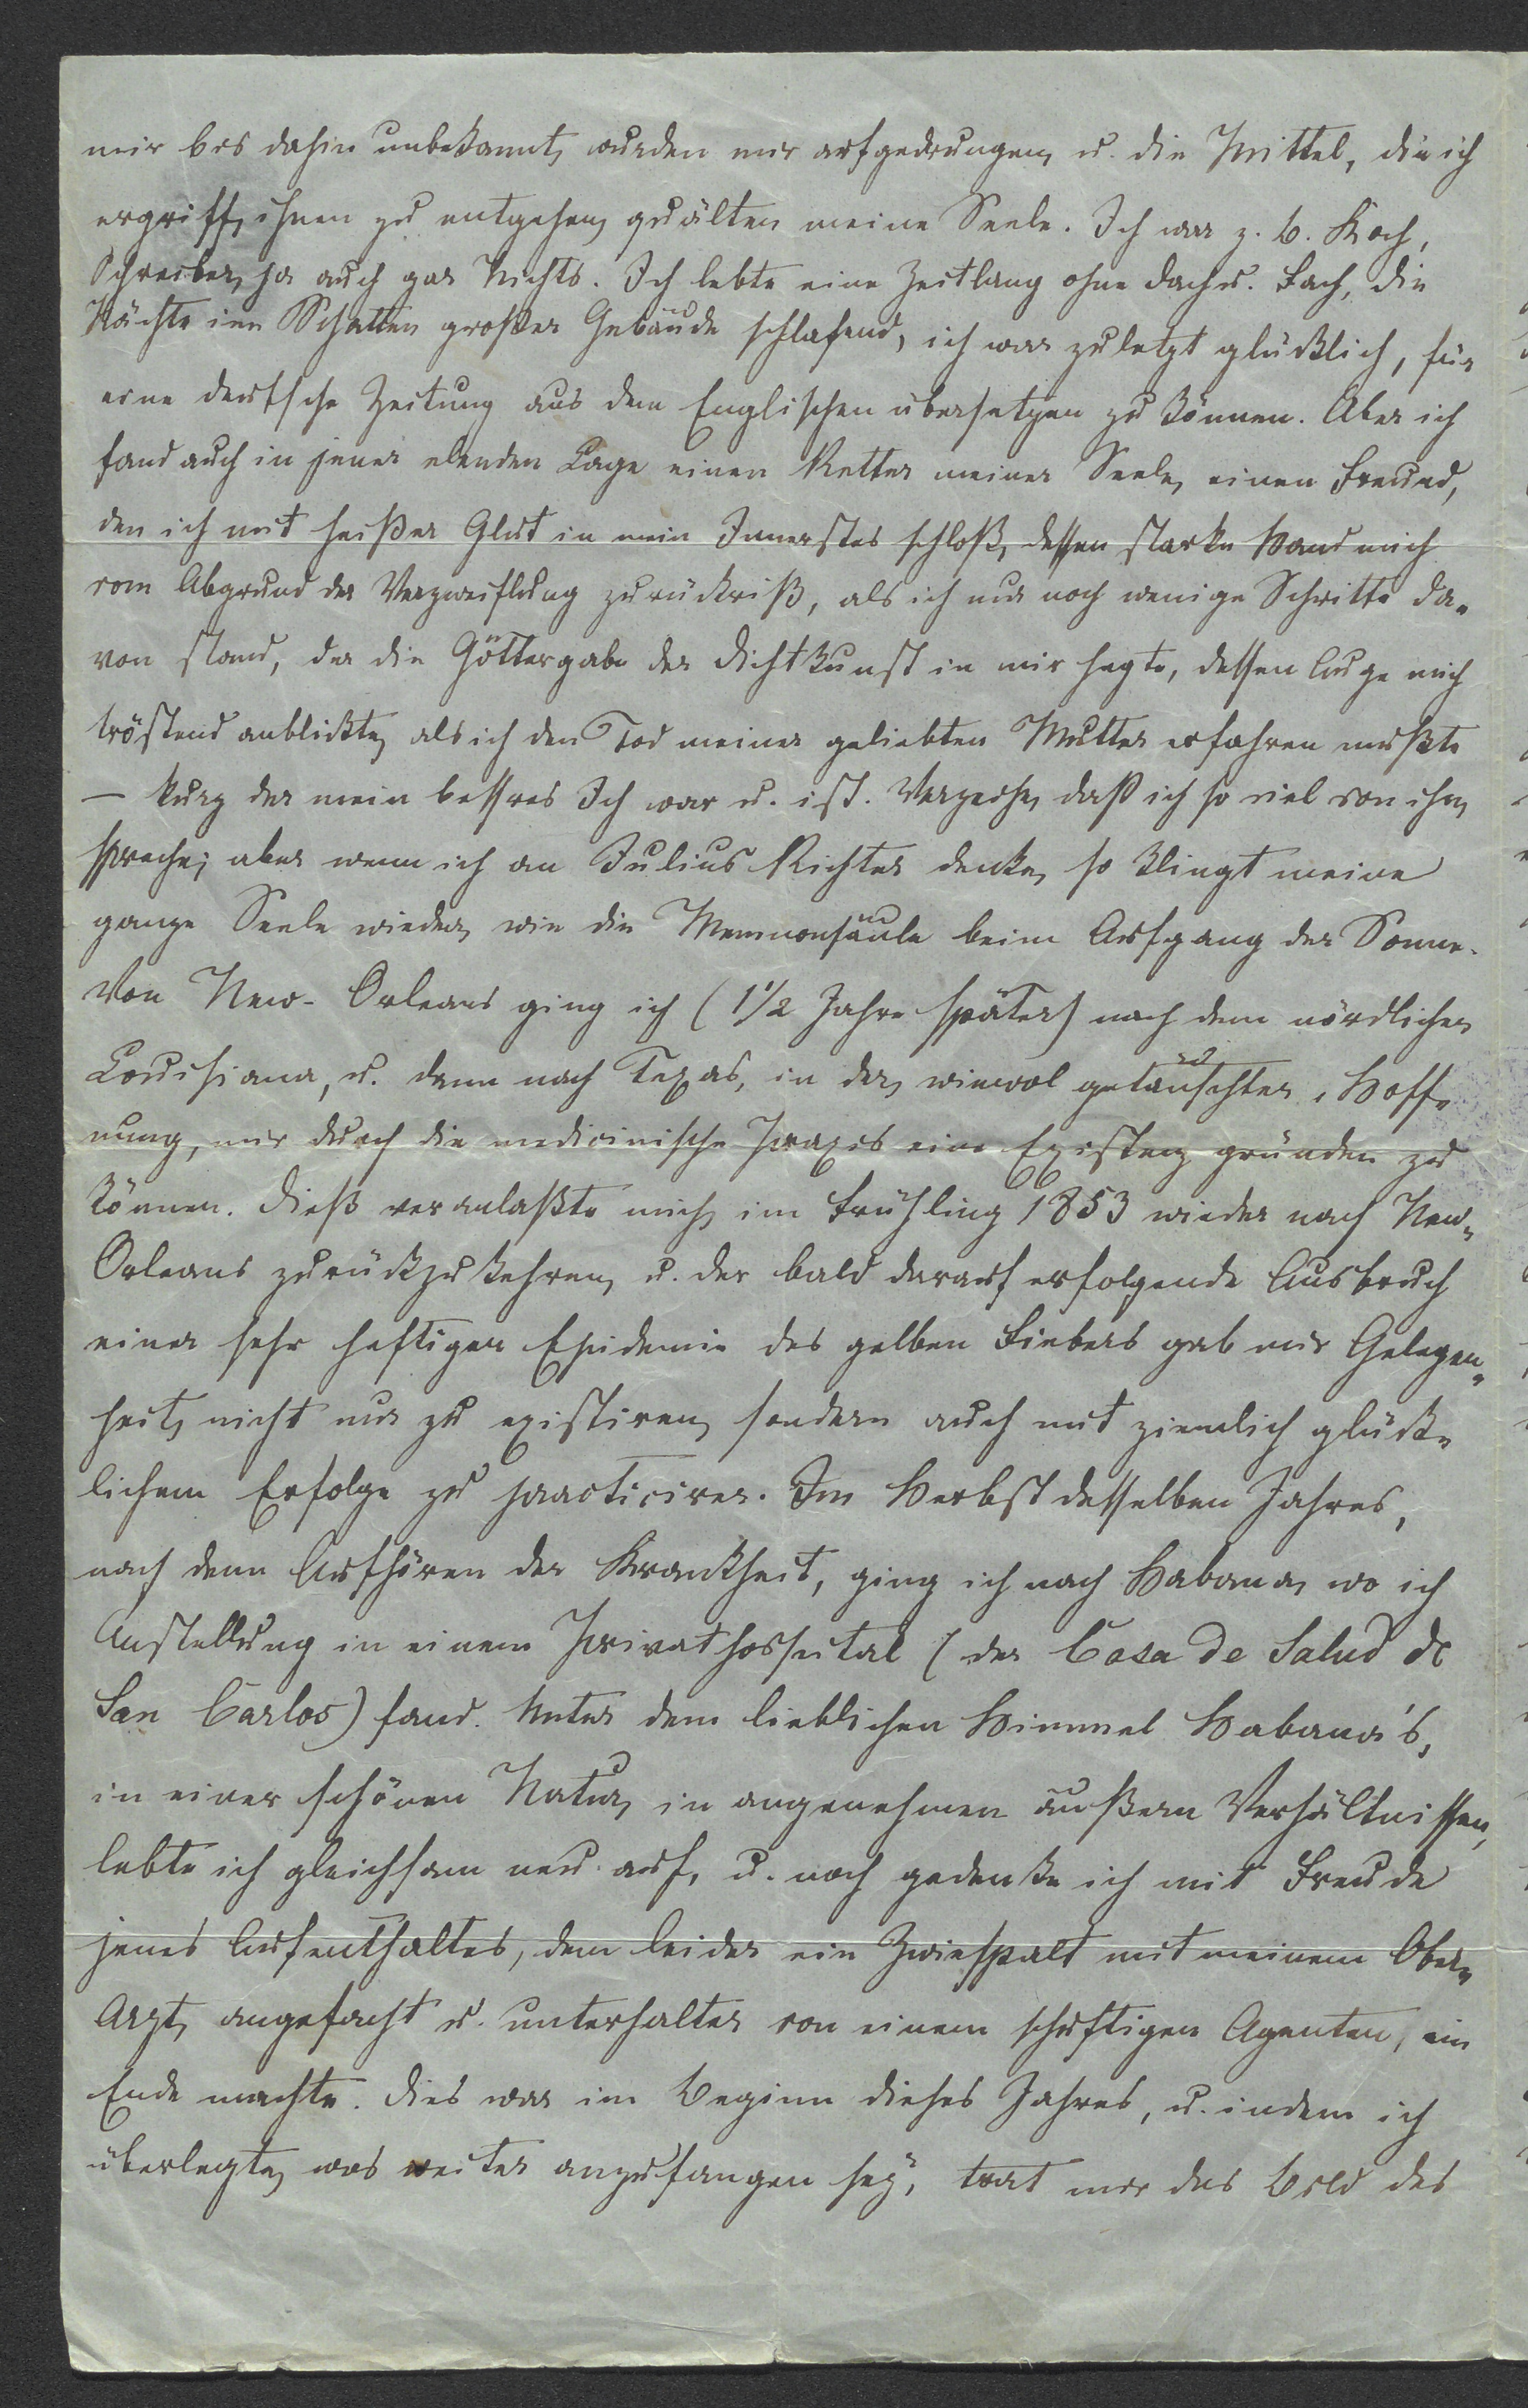 mir bis dahin unbekannt, wurden mir aufgedrungen, u. die Mittel, die ich
ergriff, ihnen zu entgehen, quälten meine Seele. Ich war z. B. Koch,
Schreiber, ja auch gar Nichts. Ich lebte eine Zeitlang ohne Dach u. Fach, die
Nächte im Schatten großer Gebäude schlafend, ich war zuletzt glücklich, für
eine deutsche Zeitung aus dem Englischen übersetzen zu können. Aber ich
fand auch in jener elenden Lage einen Retter meiner Seele, einen Freund,
den ich mit heißer Glut in mein Innerstes schloß, dessen starke Hand mich
vom Abgrund der Verzweiflung zurückriß, als ich nur noch wenige Schritte da-
von stand, der die Göttergabe der Dichtkunst in mir hegte, dessen Auge mich
tröstend anblickte, als ich den Tod meiner geliebten Mutter erfahren mußte
— kurz der mein bessres Ich war u. ist. Verzeihe, daß ich so viel von ihm
spreche; aber wenn ich an Julius Richter denke, so klingt meine
ganze Seele wieder, wie die Memnonsäule beim Aufgang der Sonne.
Von New-Orleans ging ich (1½ Jahre später) nach dem nördlichen
Louisiana, u. dann nach Texas, in der, wiewol getäuschten, Hoff-
nung, mir durch die medicinische Praxis eine Existenz gründen zu
können. Dieß veranlaßte mich, im Frühling 1853 wieder nach New-
Orleans zurückzukehren, u. der bald darauf erfolgende Ausbruch
einer sehr heftigen Epidemie des gelben Fiebers gab mir Gelegen-
heit, nicht nur zu existiren, sondern auch mit ziemlich glück-
lichem Erfolge zu practiciren. Im Herbst desselben Jahres,
nach dem Aufhören der Krankheit, ging ich nach Habana, wo ich
Anstellung in einem Privathospital (der Casa de Salud de
San Carlos) fand. Unter dem lieblichen Himmel Habana's,
in einer schönen Natur, in angenehmen äußern Verhältnissen,
lebte ich gleichsam neu auf, u. noch gedenke ich mit Freude
jenes Aufenthaltes, dem leider ein Zwiespalt mit meinem Ober-
Arzt, angefacht u. unterhalten von einem schuftigen Agenten, ein
Ende machte. Dies war im Beginn dieses Jahres, u. indem ich
überlegte, was weiter anzufangen sey, trat mir das Bild des